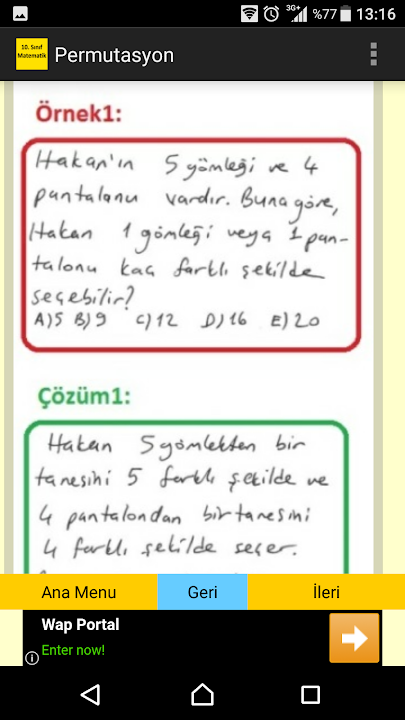 3G+ %77 13:16
10. Sınıf
Matematik
Permutasyon
Örnek1:
Hakan'ın 5 gömleği ve 4
pantalonu vardır. Buna göre,
Hakan 1 gömleği veya 1 pan-
talonu kaç farklı şekilde
seçebilir?
A)5 B)9 C)12 D)16 E)20
Çözüm1:
Hakan 5 gömlekten bir
tanesini 5 farklı şekilde ve
4 pantalondan bir tanesini
4 farklı şekilde seçer.
Ana Menu Geri İleri
Wap Portal
Enter now!